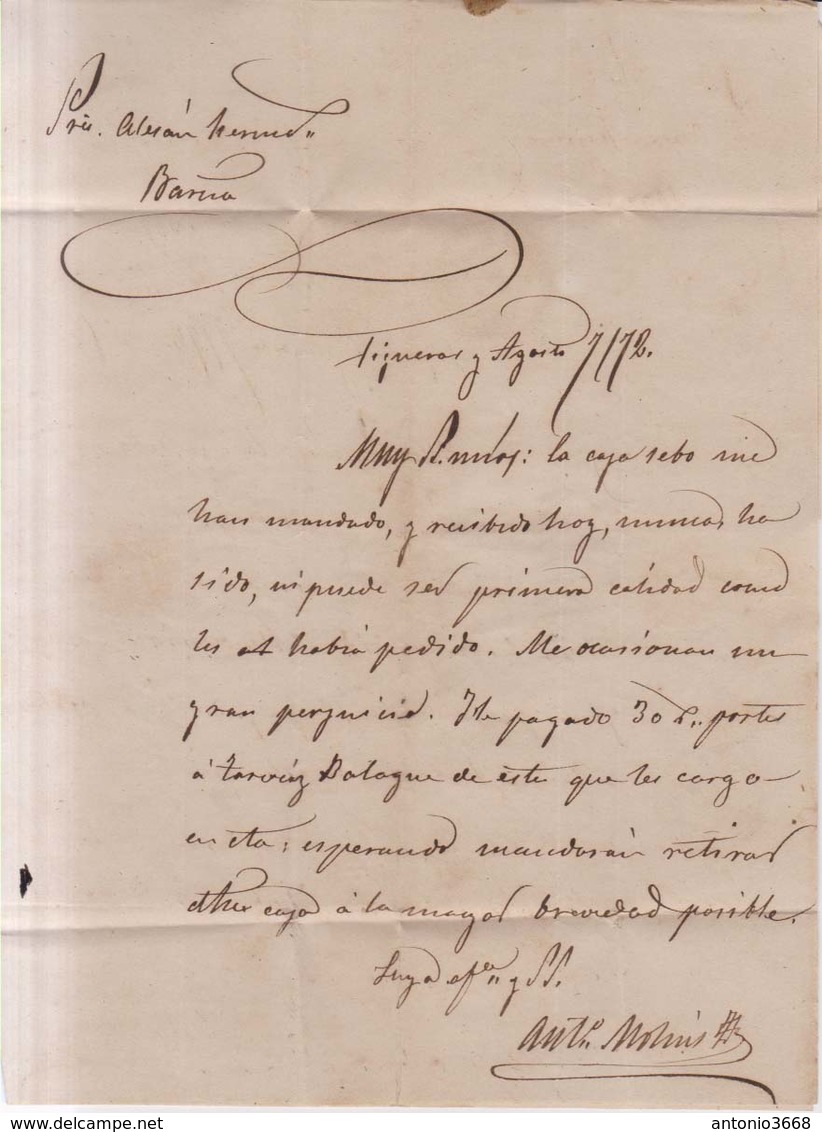 Sres. Alesán herman.
Barna
Figueras y Agosto 7/72.
Muy S. mios: la caja sebo me
han mandado, y recibido hoy, nunca ha
sido, ni puede ser primera calidad como
les había pedido. Me ocasionan un
gran perjuicio. He pagado 30 portes
á Balague de esta que les cargo
en cta; esperando mandarán retirar
dha caja á la mayor brevedad posible.
Suyo afo. y SS.
Anto. Molins
antonio3668